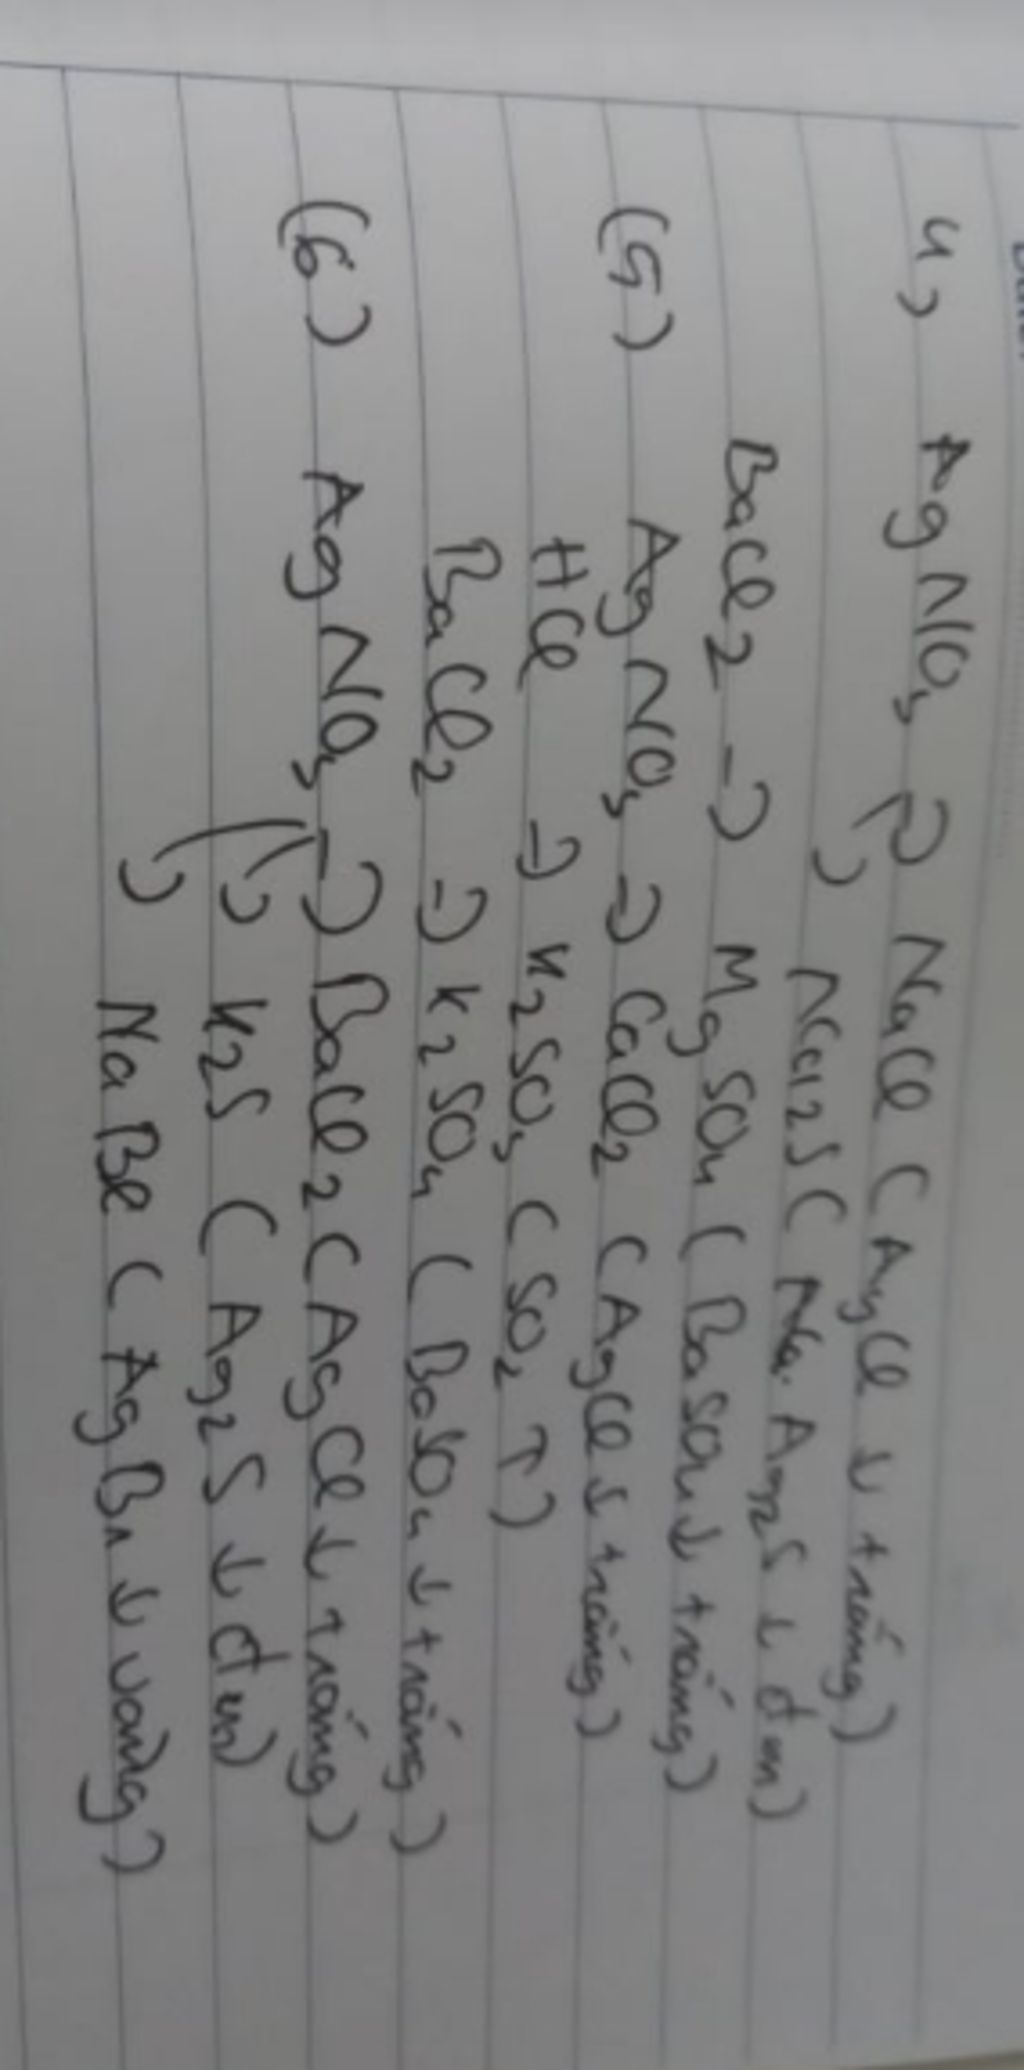 4) AgNO3 → NaCl (AgCl ↓ trắng)
→ Na2S (Na. Ag2S ↓ đen)
BaCl2 → MgSO4 (BaSO4 ↓ trắng)
(5) AgNO3 → CaCl2 (AgCl ↓ trắng)
HCl → K2SO3 (SO2 ↑)
BaCl2 → K2SO4 (BaSO4 ↓ trắng)
(6) AgNO3 → BaCl2 (AgCl ↓ trắng)
→ K2S (Ag2S ↓ đen)
→ NaBr (AgBr ↓ vàng)